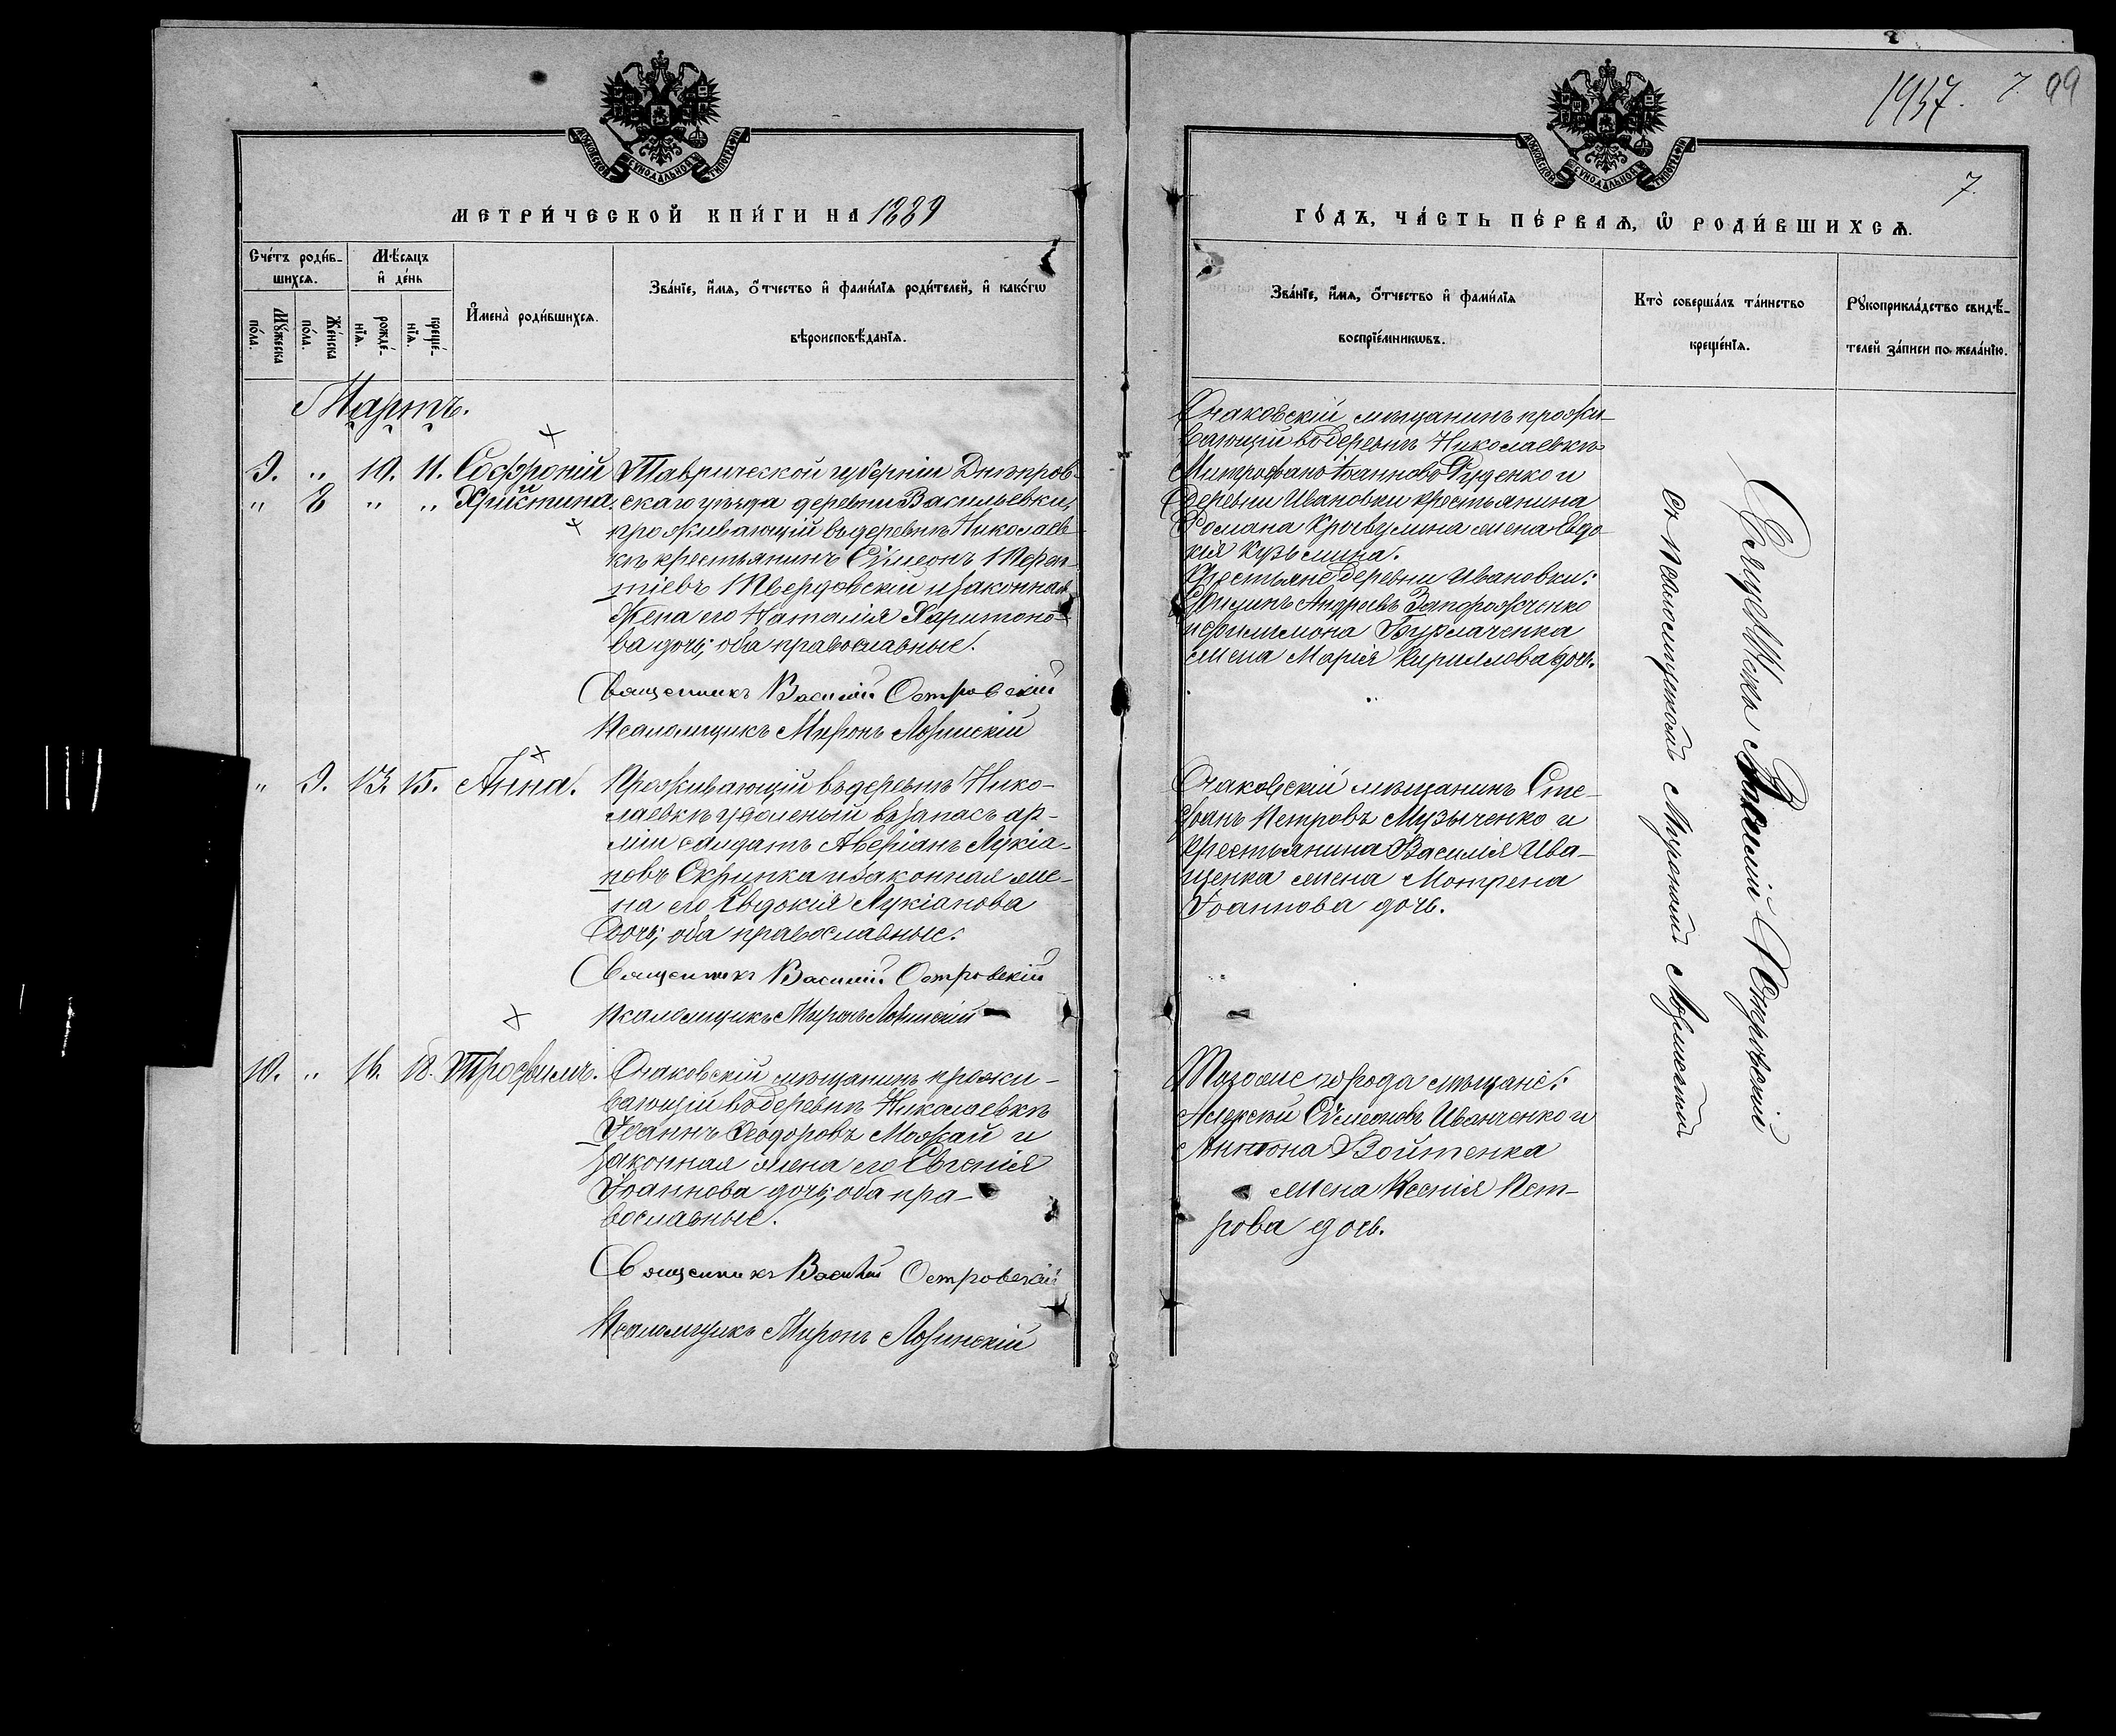 МОСКОВСКОЙ СУНОДАЛЬНОЙ ТИПОГРАФІИ
МЕТРИ́ЧЕСКОЙ КНИ́ГИ НА 1889
Сче́тъ роди́в-
шихсѧ.
Мѣ́сяцъ
и҆ де́нь
Мꙋ́жеска
по́ла.
Же́нска
по́ла.
рожде́-
нїѧ.
креще́-
нїѧ.
И҆мена̀ роди́вшихсѧ.
Зва́нїе, и҆́мѧ, ѻ҆́тчество и҆ фами́лїѧ роди́телей, и҆ како́гѡ
вѣроисповѣ́данїѧ.
Мартъ.
9. " 10. 11. Софроній Таврической губерніи Днѣпров-
" 8 " " Христина. скаго уѣзда деревни Васильевки,
проживающій въ деревнѣ Николаев-
кѣ крестьянинъ Сѵмеонъ Терен-
тіевъ Твердовскій и законная
жена его Наталія Харитоно-
ва дочь; оба православные.
Священникъ Василій Островскій
Псаломщикъ Миронъ Лозинскій
" 9. 13. 15. Анна. Проживающій въ деревнѣ Нико-
лаевкѣ уволеный въ запасъ ар-
міи солдатъ Аверіанъ Лукіа-
новъ Скрипка и законная же-
на его Евдокія Лукіанова
дочь; оба православные.
Священникъ Василій Островскій
Псаломщикъ Миронъ Лозинскій
10. " 16. 18. Трофимъ. Очаковскій мѣщанинъ прожи-
вающій въ деревнѣ Николаевкѣ
Іоаннъ Ѳеодоровъ Можай и
законная жена его Евгенія
Іоаннова дочь; оба пра-
вославные.
Священникъ Василій Островскій
Псаломщикъ Миронъ Лозинскій
1937. 7. 99
МОСКОВСКОЙ СУНОДАЛЬНОЙ ТИПОГРАФІИ
7.
ГО́ДЪ, ЧА́СТЬ ПЕ́РВАѦ, Ѡ҆ РОДИ́ВШИХСѦ.
Зва́нїе, и҆́мѧ, ѻ҆́тчество и҆ фами́лїѧ
воспрїе́мникѡвъ.
Кто̀ соверша́лъ та́инство
креще́нїѧ.
Рꙋкоприкла́дство свидѣ́-
телей за́писи по жела́нїю.
Очаковскій мѣщанинъ прожи-
вающій въ деревнѣ Николаевкѣ
Митрофанъ Іоанновъ Руденко и
деревни Ивановки крестьянина
Романа жена Евдо-
кія Кузьмина.
Крестьяне деревни Ивановки:
Андреевъ Запорожченко
и Филимона Бурлаченка
жена Марія Кириллова дочь.
Очаковскій мѣщанинъ Сте-
фанъ Петровъ Музыченко и
крестьянина Василія Ива-
щенка жена
Іоаннова дочь.
Тогоже города мѣщане:
Алексѣй Сѵмеоновъ Иванченко и
Антона Войтенка
жена Ксенія Пет-
рова дочь.
Священникъ Василій Островскій
съ псаломщикомъ Мирономъ Лозинскимъ